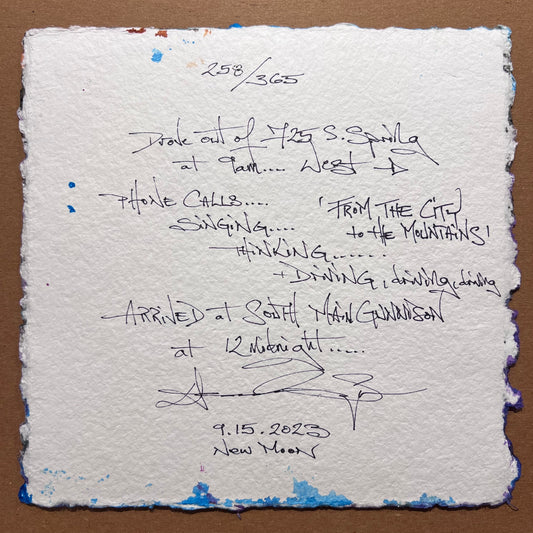 258/365
Drove out of 725 S. Spring
at 9am.... West →
PHONE CALLS....
SINGING....
'FROM THE CITY
to the MOUNTAINS'
THINKING.......
+ DRIVING, driving, driving
ARRIVED at SOUTH MAIN GUNNISON
at 12 Midnight.....
9.15.2023
New Moon